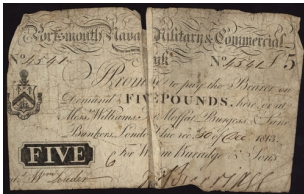 Portsmouth Naval Military & Commercial
Bank
No 4541 No 4541 £5
I Promise to pay the Bearer on
Demand FIVE POUNDS, here or at
Mess. Williams Moffat, Burgess & Lane
Bankers, London 30 of Dec 1813.
FIVE For Wm Burridge & Sons
Wm Loader